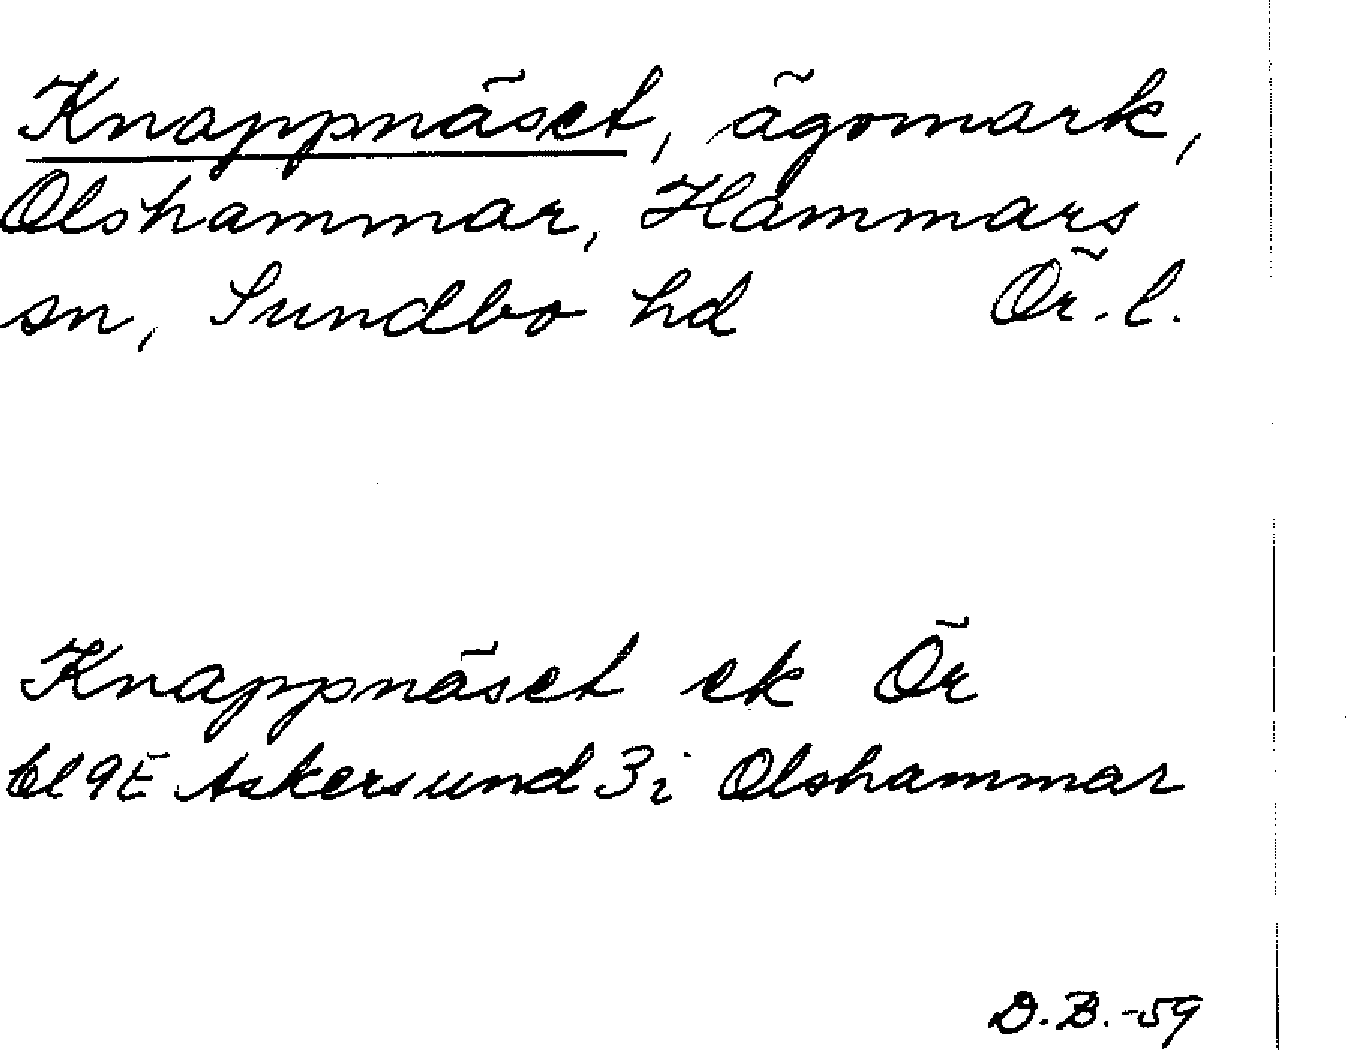 Knappnäset, ägomark,
Olshammar, Hammars
sn, Sundbo hd Ör. l.
Knappnäset ek Ör
bl 9E Askersund 3i Olshammar
D.B. -59